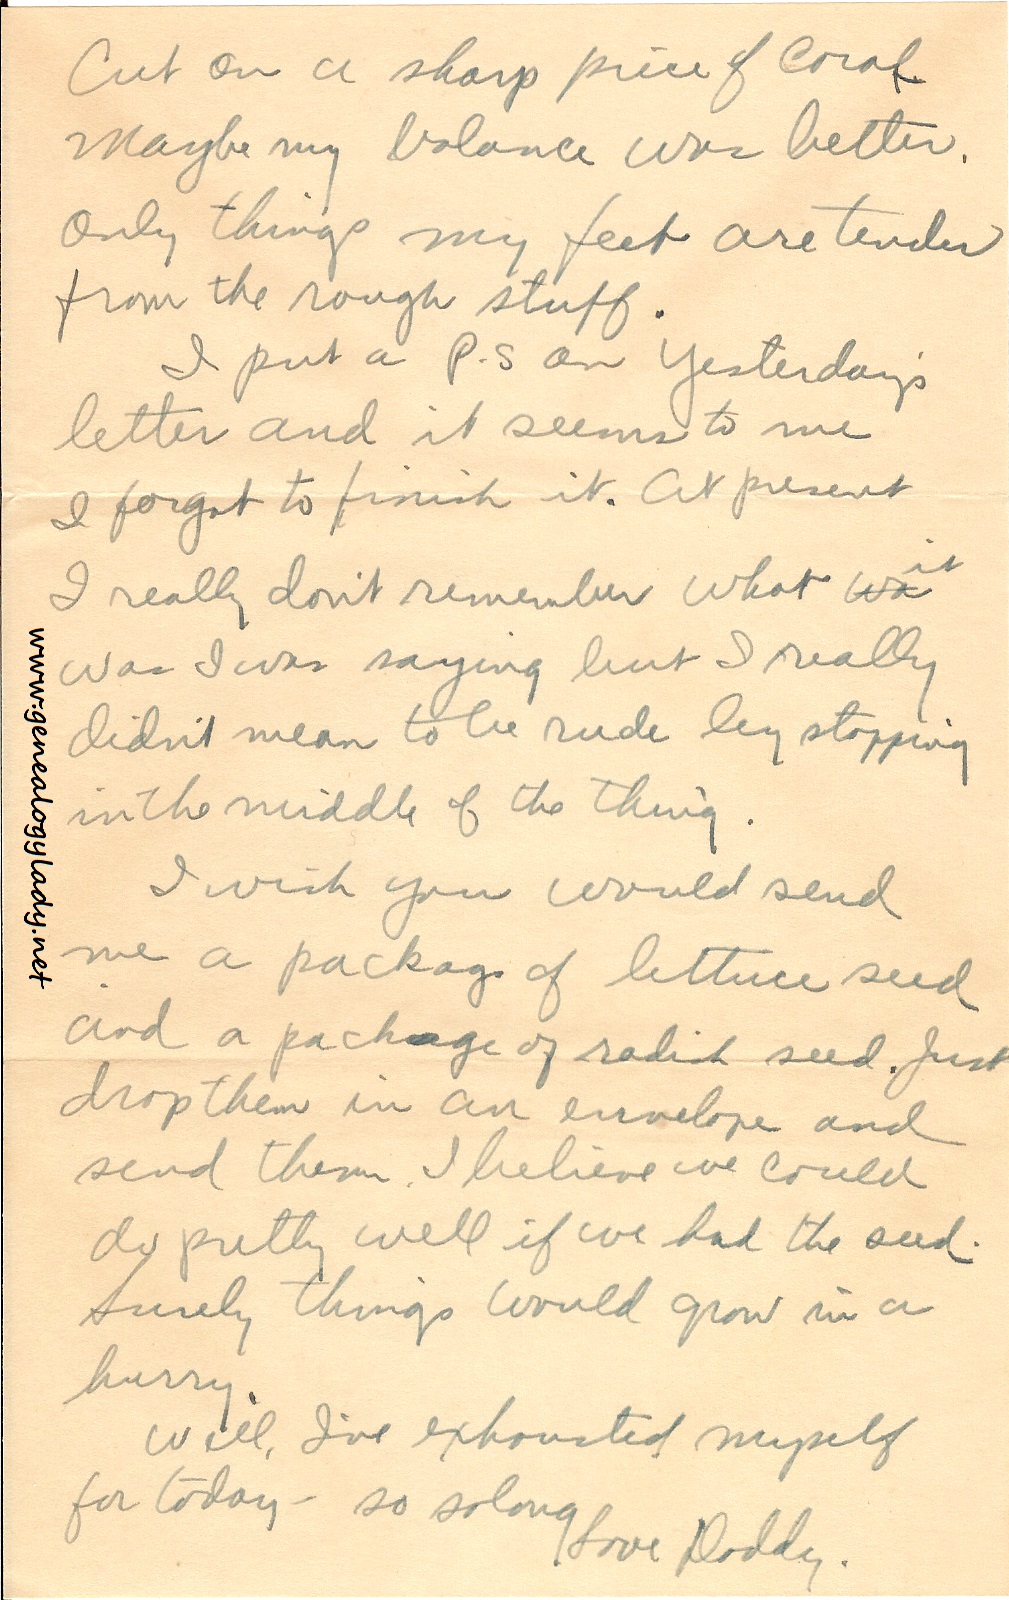 Cut on a sharp piece of coral
Maybe my balance was better.
Only things my feet are tender
from the rough stuff.
I put a P.S on Yesterday's
letter and it seems to me
I forgot to finish it. At present
I really don't remember what wa it
was I was saying but I really
didn't mean to be rude by stopping
in the middle of the thing.
I wish you would send
me a package of lettuce seed
and a package of radish seed. Just
drop them in an envelope and
send them. I believe we could
do pretty well if we had the seed.
Surely things would grow in a
hurry.
Well, I've exhausted myself
for today - so solong
Love Daddy.
www.genealogylady.net